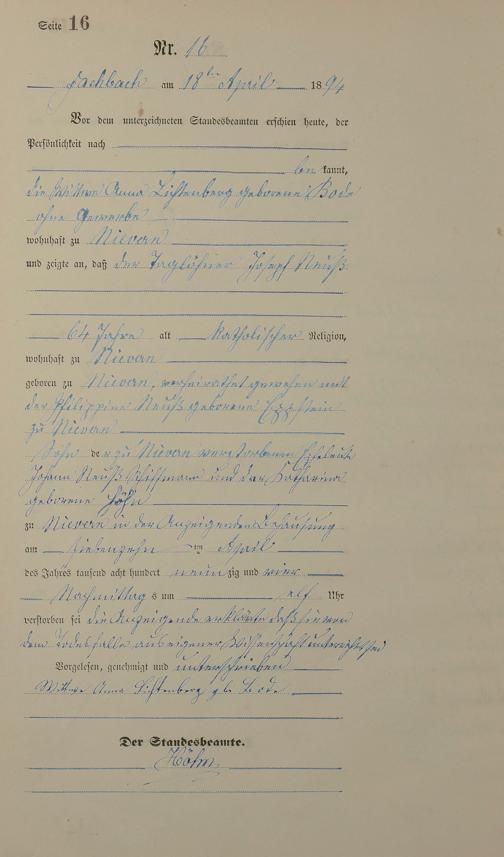 Seite 16
Nr. 16
Fachbach am 18ten April 1894
Vor dem unterzeichneten Standesbeamten erschien heute, der
Persönlichkeit nach
be kannt,
die Wittwe Anna Lichtenberg geborene Bode
ohne Gewerbe
wohnhaft zu Nievern
und zeigte an, daß der Taglöhner Joseph Neuß
64 Jahre alt katholischer Religion,
wohnhaft zu Nievern
geboren zu Nievern, verheirathet gewesen mit
der Philippine Neuß geborene Eppstein
zu Nievern
Sohn der zu Nievern verstorbenen Eheleute
Johann Neuß Schiffmann und der Katharina
geborene Höhn
zu Nievern in der Anzeigenden Behausung
am siebenzehn ten April
des Jahres tausend acht hundert neunzig und vier
Nachmittags um elf Uhr
verstorben sei die Anzeigende erklärte daß sie von
dem Todesfalle aus eigener Wissenschaft unterrichtet sei
Vorgelesen, genehmigt und unterschrieben
Wittwe Anna Lichtenberg gb. Bode
Der Standesbeamte.
Höhn